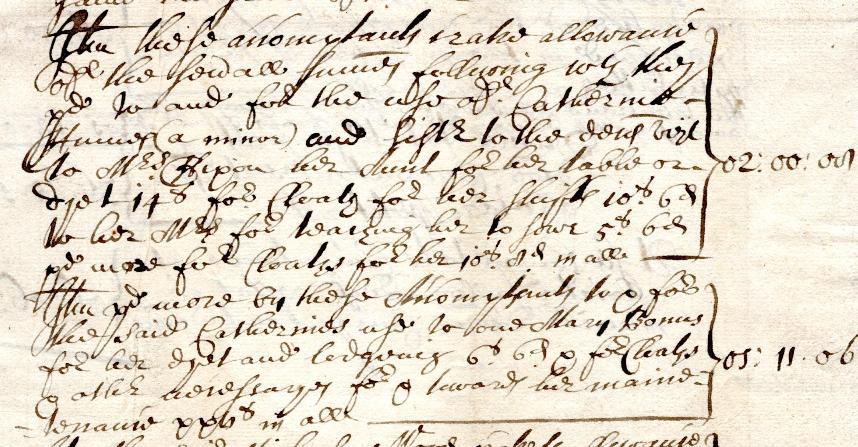 Itm these Accomptants crave allowance
of the sevall summes following wch they
pd to and for the use of Catherine
(a minor) and sistr to the decd vizt
to Mrs her Aunt for her table or
dyet 14s for Cloaths for her 10s 6d
to her Mrs for teaching her to sowe 5s 6d
pd more for Cloaths for her 10s 8d in all 02: 00: 08
Itm pd more by these Accomptants to & for
the said Catherines use to one Mary Bonus
for her dyet and lodgeing 6s 6d & for Cloaths
& other necessaryes for & towards her maine-
-tenance xxvs in all 01: 11: 06